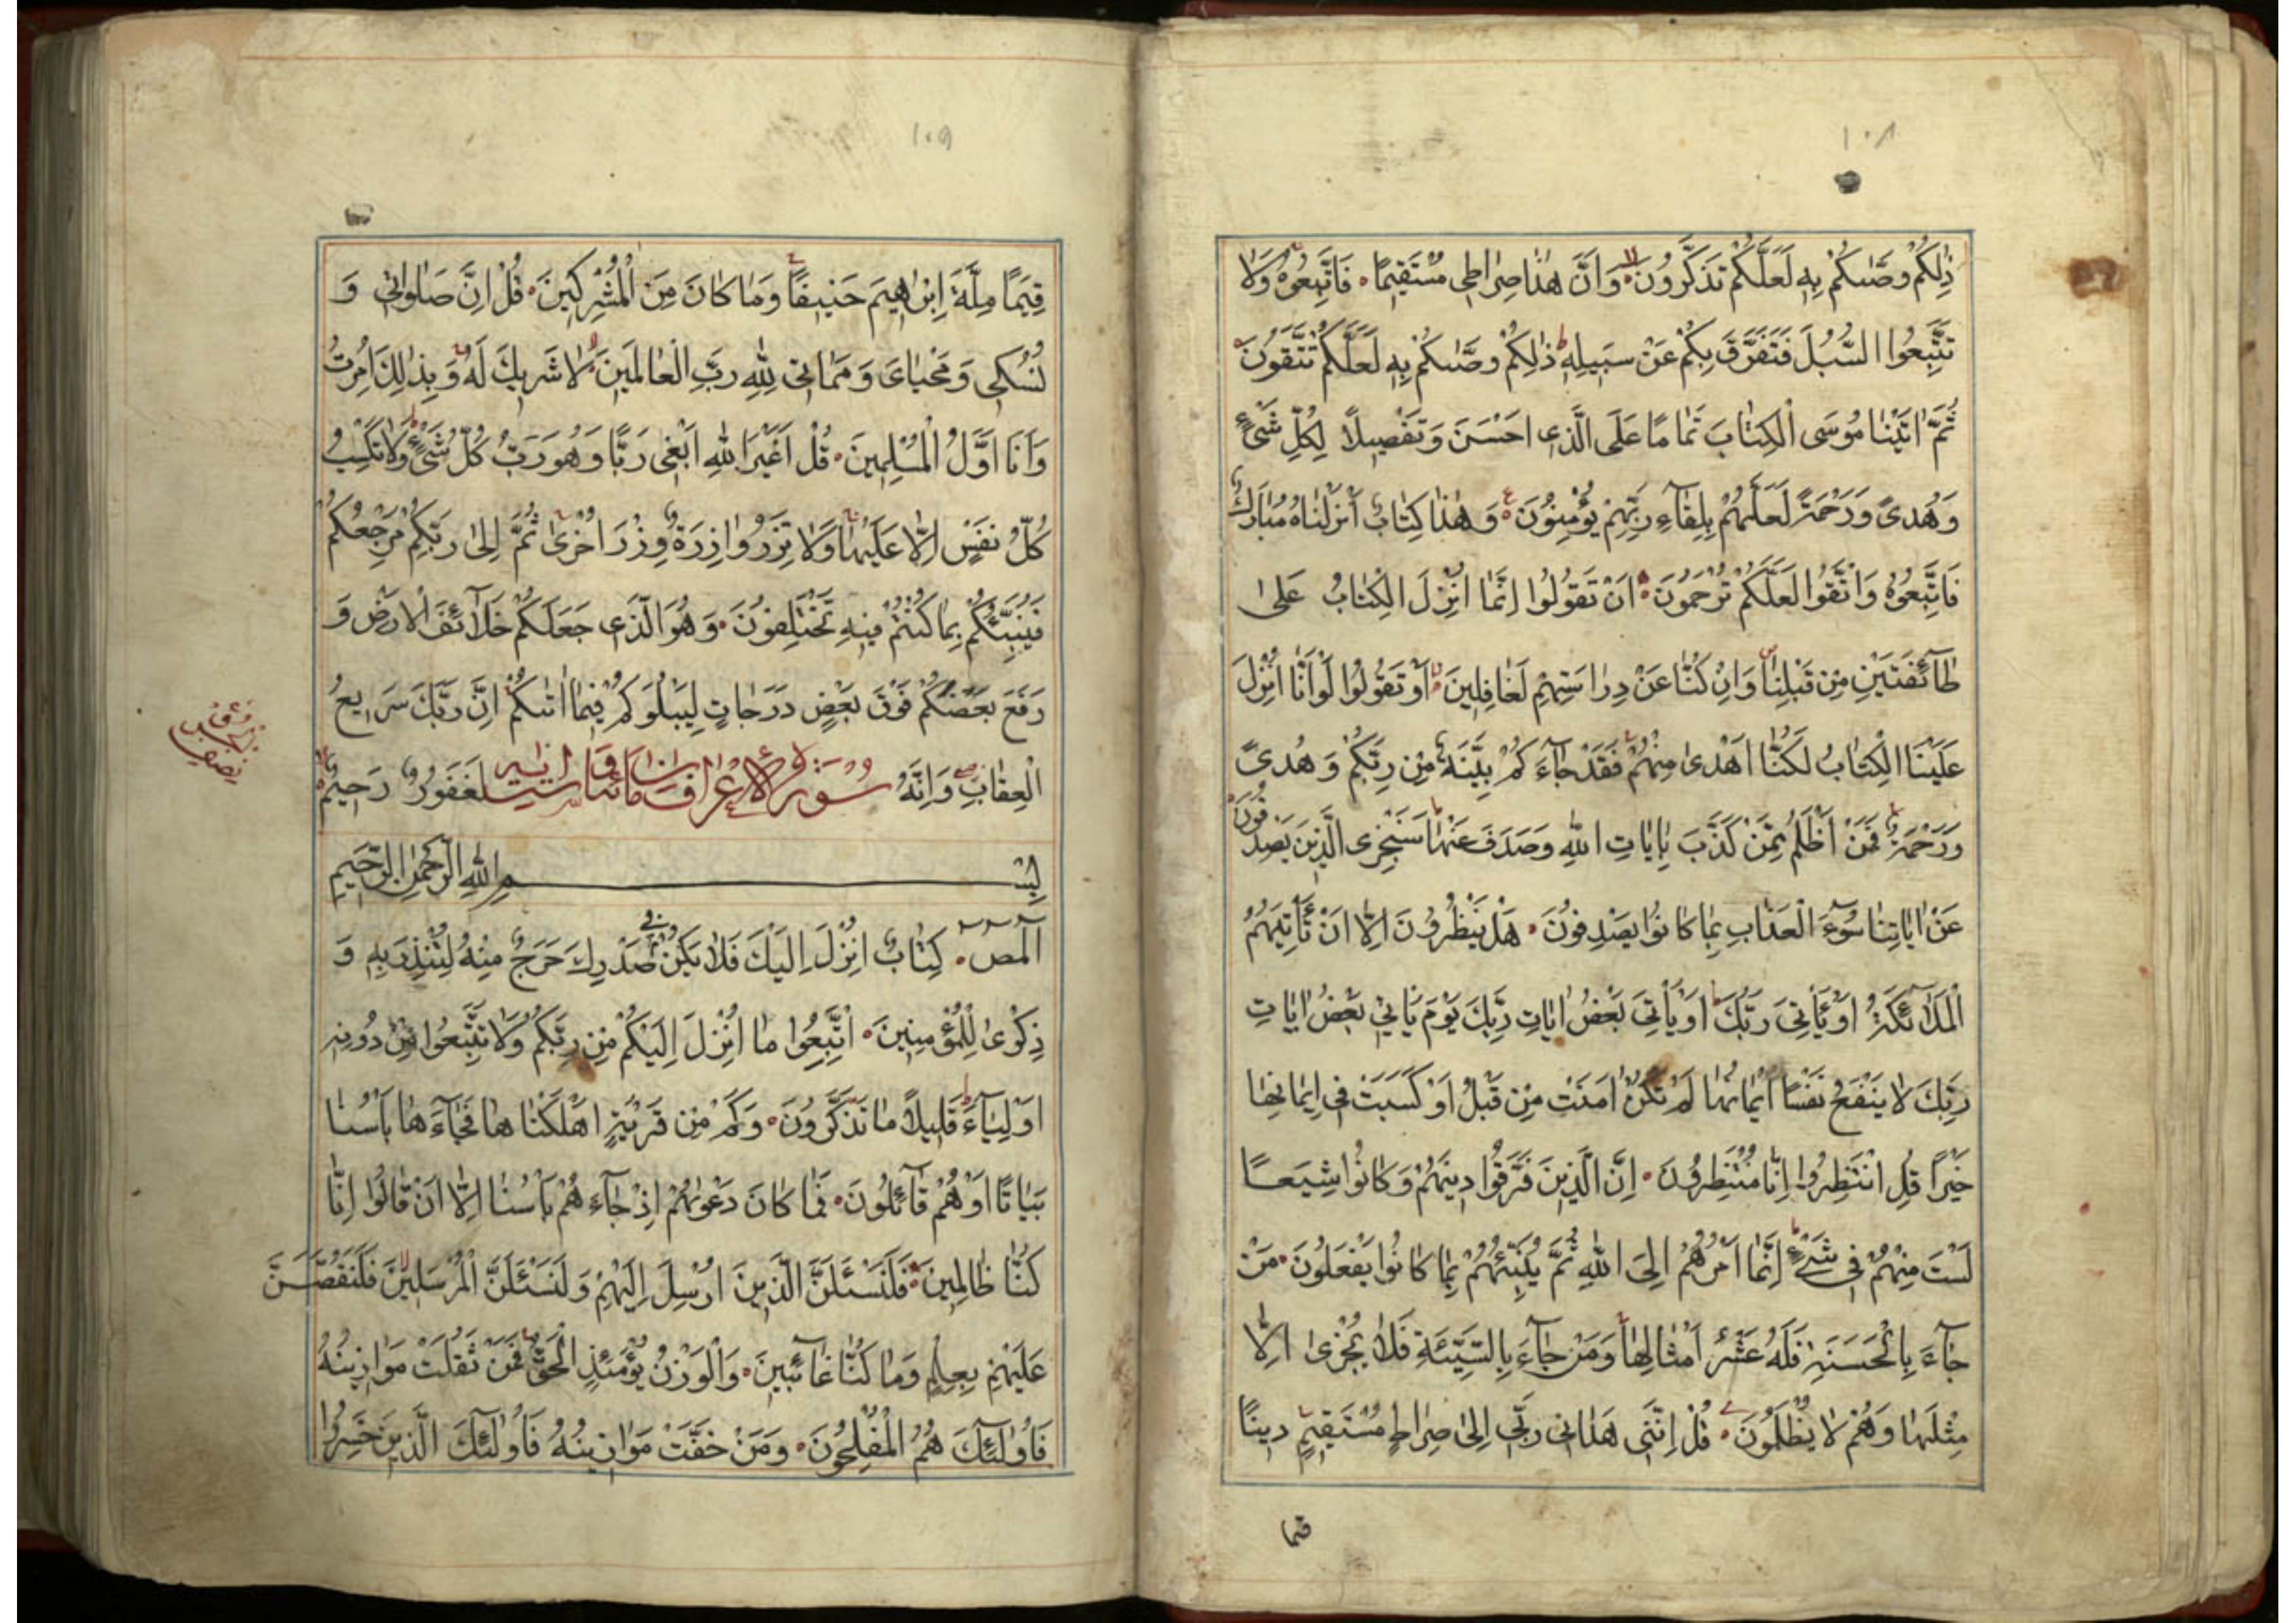 ١٠٨
ذٰلِكُمْ وَصّٰىكُمْ بِهٖ لَعَلَّكُمْ تَذَكَّرُونَ وَاَنَّ هٰذَا صِرَاطِى مُسْتَقِيمًا فَاتَّبِعُوهُ وَلَا
تَتَّبِعُوا السُّبُلَ فَتَفَرَّقَ بِكُمْ عَنْ سَبِيلِهٖ ذٰلِكُمْ وَصّٰىكُمْ بِهٖ لَعَلَّكُمْ تَتَّقُونَ
ثُمَّ اٰتَيْنَا مُوسَى الْكِتَابَ تَمَامًا عَلَى الَّذِى اَحْسَنَ وَتَفْصِيلًا لِكُلِّ شَىْءٍ
وَهُدًى وَرَحْمَةً لَعَلَّهُمْ بِلِقَآءِ رَبِّهِمْ يُؤْمِنُونَ وَهٰذَا كِتَابٌ اَنْزَلْنَاهُ مُبَارَكٌ
فَاتَّبِعُوهُ وَاتَّقُوا لَعَلَّكُمْ تُرْحَمُونَ اَنْ تَقُولُوا اِنَّمَا اُنْزِلَ الْكِتَابُ عَلٰى
طَآئِفَتَيْنِ مِنْ قَبْلِنَا وَاِنْ كُنَّا عَنْ دِرَاسَتِهِمْ لَغَافِلِينَ اَوْ تَقُولُوا لَوْ اَنَّا اُنْزِلَ
عَلَيْنَا الْكِتَابُ لَكُنَّا اَهْدٰى مِنْهُمْ فَقَدْ جَآءَكُمْ بَيِّنَةٌ مِنْ رَبِّكُمْ وَهُدًى
وَرَحْمَةٌ فَمَنْ اَظْلَمُ مِمَّنْ كَذَّبَ بِاٰيَاتِ اللّٰهِ وَصَدَفَ عَنْهَا سَنَجْزِى الَّذِينَ يَصْدِفُونَ
عَنْ اٰيَاتِنَا سُوٓءَ الْعَذَابِ بِمَا كَانُوا يَصْدِفُونَ هَلْ يَنْظُرُونَ اِلَّا اَنْ تَأْتِيَهُمُ
الْمَلَآئِكَةُ اَوْ يَأْتِىَ رَبُّكَ اَوْ يَأْتِىَ بَعْضُ اٰيَاتِ رَبِّكَ يَوْمَ يَأْتِى بَعْضُ اٰيَاتِ
رَبِّكَ لَا يَنْفَعُ نَفْسًا اِيمَانُهَا لَمْ تَكُنْ اٰمَنَتْ مِنْ قَبْلُ اَوْ كَسَبَتْ فِى اِيمَانِهَا
خَيْرًا قُلِ انْتَظِرُوا اِنَّا مُنْتَظِرُونَ اِنَّ الَّذِينَ فَرَّقُوا دِينَهُمْ وَكَانُوا شِيَعًا
لَسْتَ مِنْهُمْ فِى شَىْءٍ اِنَّمَا اَمْرُهُمْ اِلَى اللّٰهِ ثُمَّ يُنَبِّئُهُمْ بِمَا كَانُوا يَفْعَلُونَ مَنْ
جَآءَ بِالْحَسَنَةِ فَلَهُ عَشْرُ اَمْثَالِهَا وَمَنْ جَآءَ بِالسَّيِّئَةِ فَلَا يُجْزٰى اِلَّا
مِثْلَهَا وَهُمْ لَا يُظْلَمُونَ قُلْ اِنَّنِى هَدَانِى رَبِّى اِلٰى صِرَاطٍ مُسْتَقِيمٍ دِينًا
قيما
١٠٩
قِيَمًا مِلَّةَ اِبْرٰهِيمَ حَنِيفًا وَمَا كَانَ مِنَ الْمُشْرِكِينَ قُلْ اِنَّ صَلٰوتِى وَ
نُسُكِى وَمَحْيَاىَ وَمَمَاتِى لِلّٰهِ رَبِّ الْعَالَمِينَ لَا شَرِيكَ لَهُ وَبِذٰلِكَ اُمِرْتُ
وَاَنَا اَوَّلُ الْمُسْلِمِينَ قُلْ اَغَيْرَ اللّٰهِ اَبْغِى رَبًّا وَهُوَ رَبُّ كُلِّ شَىْءٍ وَلَا تَكْسِبُ
كُلُّ نَفْسٍ اِلَّا عَلَيْهَا وَلَا تَزِرُ وَازِرَةٌ وِزْرَ اُخْرٰى ثُمَّ اِلٰى رَبِّكُمْ مَرْجِعُكُمْ
فَيُنَبِّئُكُمْ بِمَا كُنْتُمْ فِيهِ تَخْتَلِفُونَ وَهُوَ الَّذِى جَعَلَكُمْ خَلَآئِفَ الْاَرْضِ وَ
رَفَعَ بَعْضَكُمْ فَوْقَ بَعْضٍ دَرَجَاتٍ لِيَبْلُوَكُمْ فِيمَا اٰتٰىكُمْ اِنَّ رَبَّكَ سَرِيعُ
الْعِقَابِ وَاِنَّهُ سُورَةُ الْاَعْرَافِ مائتان وست ايات لَغَفُورٌ رَحِيمٌ
بِسْمِ اللّٰهِ الرَّحْمٰنِ الرَّحِيمِ
الٓمٓصٓ كِتَابٌ اُنْزِلَ اِلَيْكَ فَلَا يَكُنْ فِى صَدْرِكَ حَرَجٌ مِنْهُ لِتُنْذِرَ بِهٖ وَ
ذِكْرٰى لِلْمُؤْمِنِينَ اتَّبِعُوا مَا اُنْزِلَ اِلَيْكُمْ مِنْ رَبِّكُمْ وَلَا تَتَّبِعُوا مِنْ دُونِهٖ
اَوْلِيَآءَ قَلِيلًا مَا تَذَكَّرُونَ وَكَمْ مِنْ قَرْيَةٍ اَهْلَكْنَاهَا فَجَآءَهَا بَأْسُنَا
بَيَاتًا اَوْ هُمْ قَآئِلُونَ فَمَا كَانَ دَعْوٰىهُمْ اِذْ جَآءَهُمْ بَأْسُنَا اِلَّا اَنْ قَالُوا اِنَّا
كُنَّا ظَالِمِينَ فَلَنَسْئَلَنَّ الَّذِينَ اُرْسِلَ اِلَيْهِمْ وَلَنَسْئَلَنَّ الْمُرْسَلِينَ فَلَنَقُصَّنَّ
عَلَيْهِمْ بِعِلْمٍ وَمَا كُنَّا غَآئِبِينَ وَالْوَزْنُ يَوْمَئِذٍ الْحَقُّ فَمَنْ ثَقُلَتْ مَوَازِينُهُ
فَاُولٰٓئِكَ هُمُ الْمُفْلِحُونَ وَمَنْ خَفَّتْ مَوَازِينُهُ فَاُولٰٓئِكَ الَّذِينَ خَسِرُوا